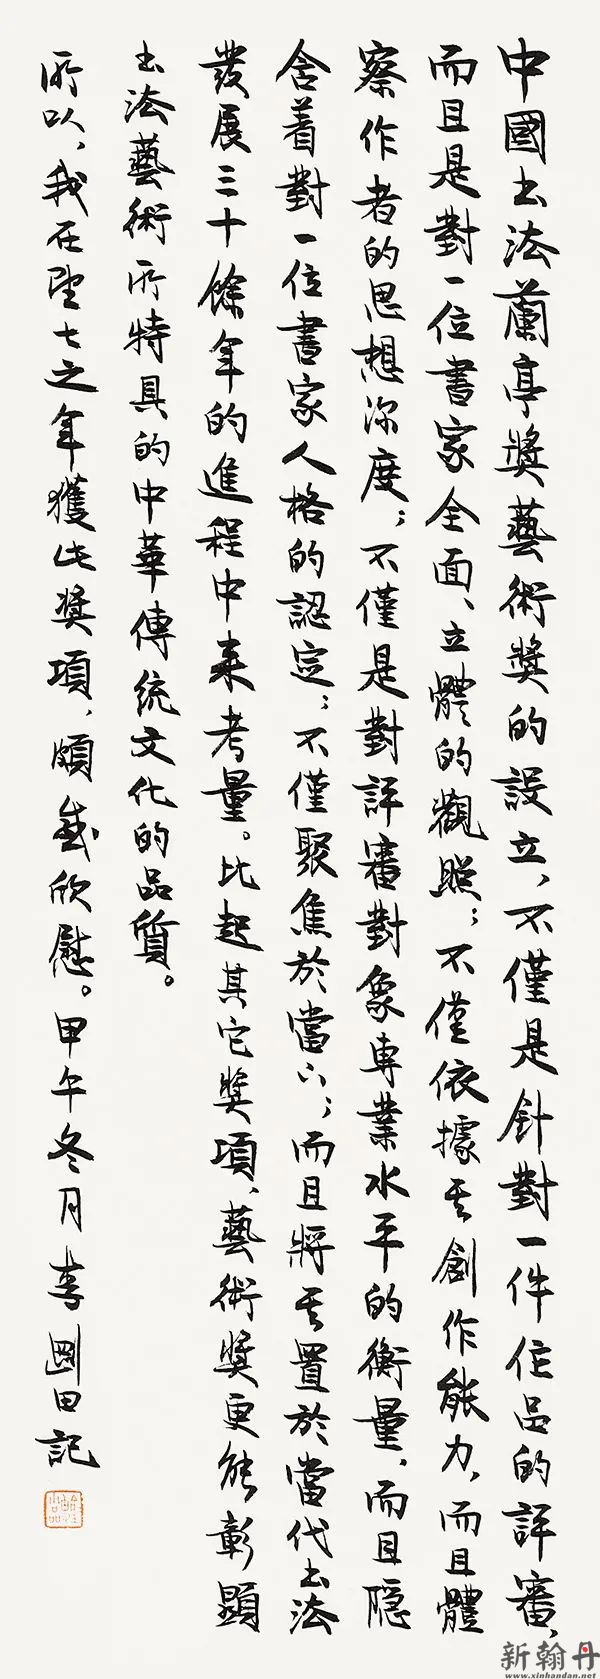 中國书法蘭亭獎藝術獎的設立、不僅是針對一件作品的評審、
而且是對一位書家全面、立體的觀照；不僅依據其創作能力，而且體
察作者的思想深度；不僅是對評審對象專業水平的衡量、而且隐
含着對一位書家人格的認定；不僅聚焦於當下；而且將其置於當代书法
發展三十餘年的進程中来考量。比起其它獎項、藝術獎更能彰顯
书法藝術所特具的中華傳統文化的品質。
所以、我在望七之年獲此奖項，頗感欣慰。甲午冬月李剛田記
新翰丹
www.xinhandan.net